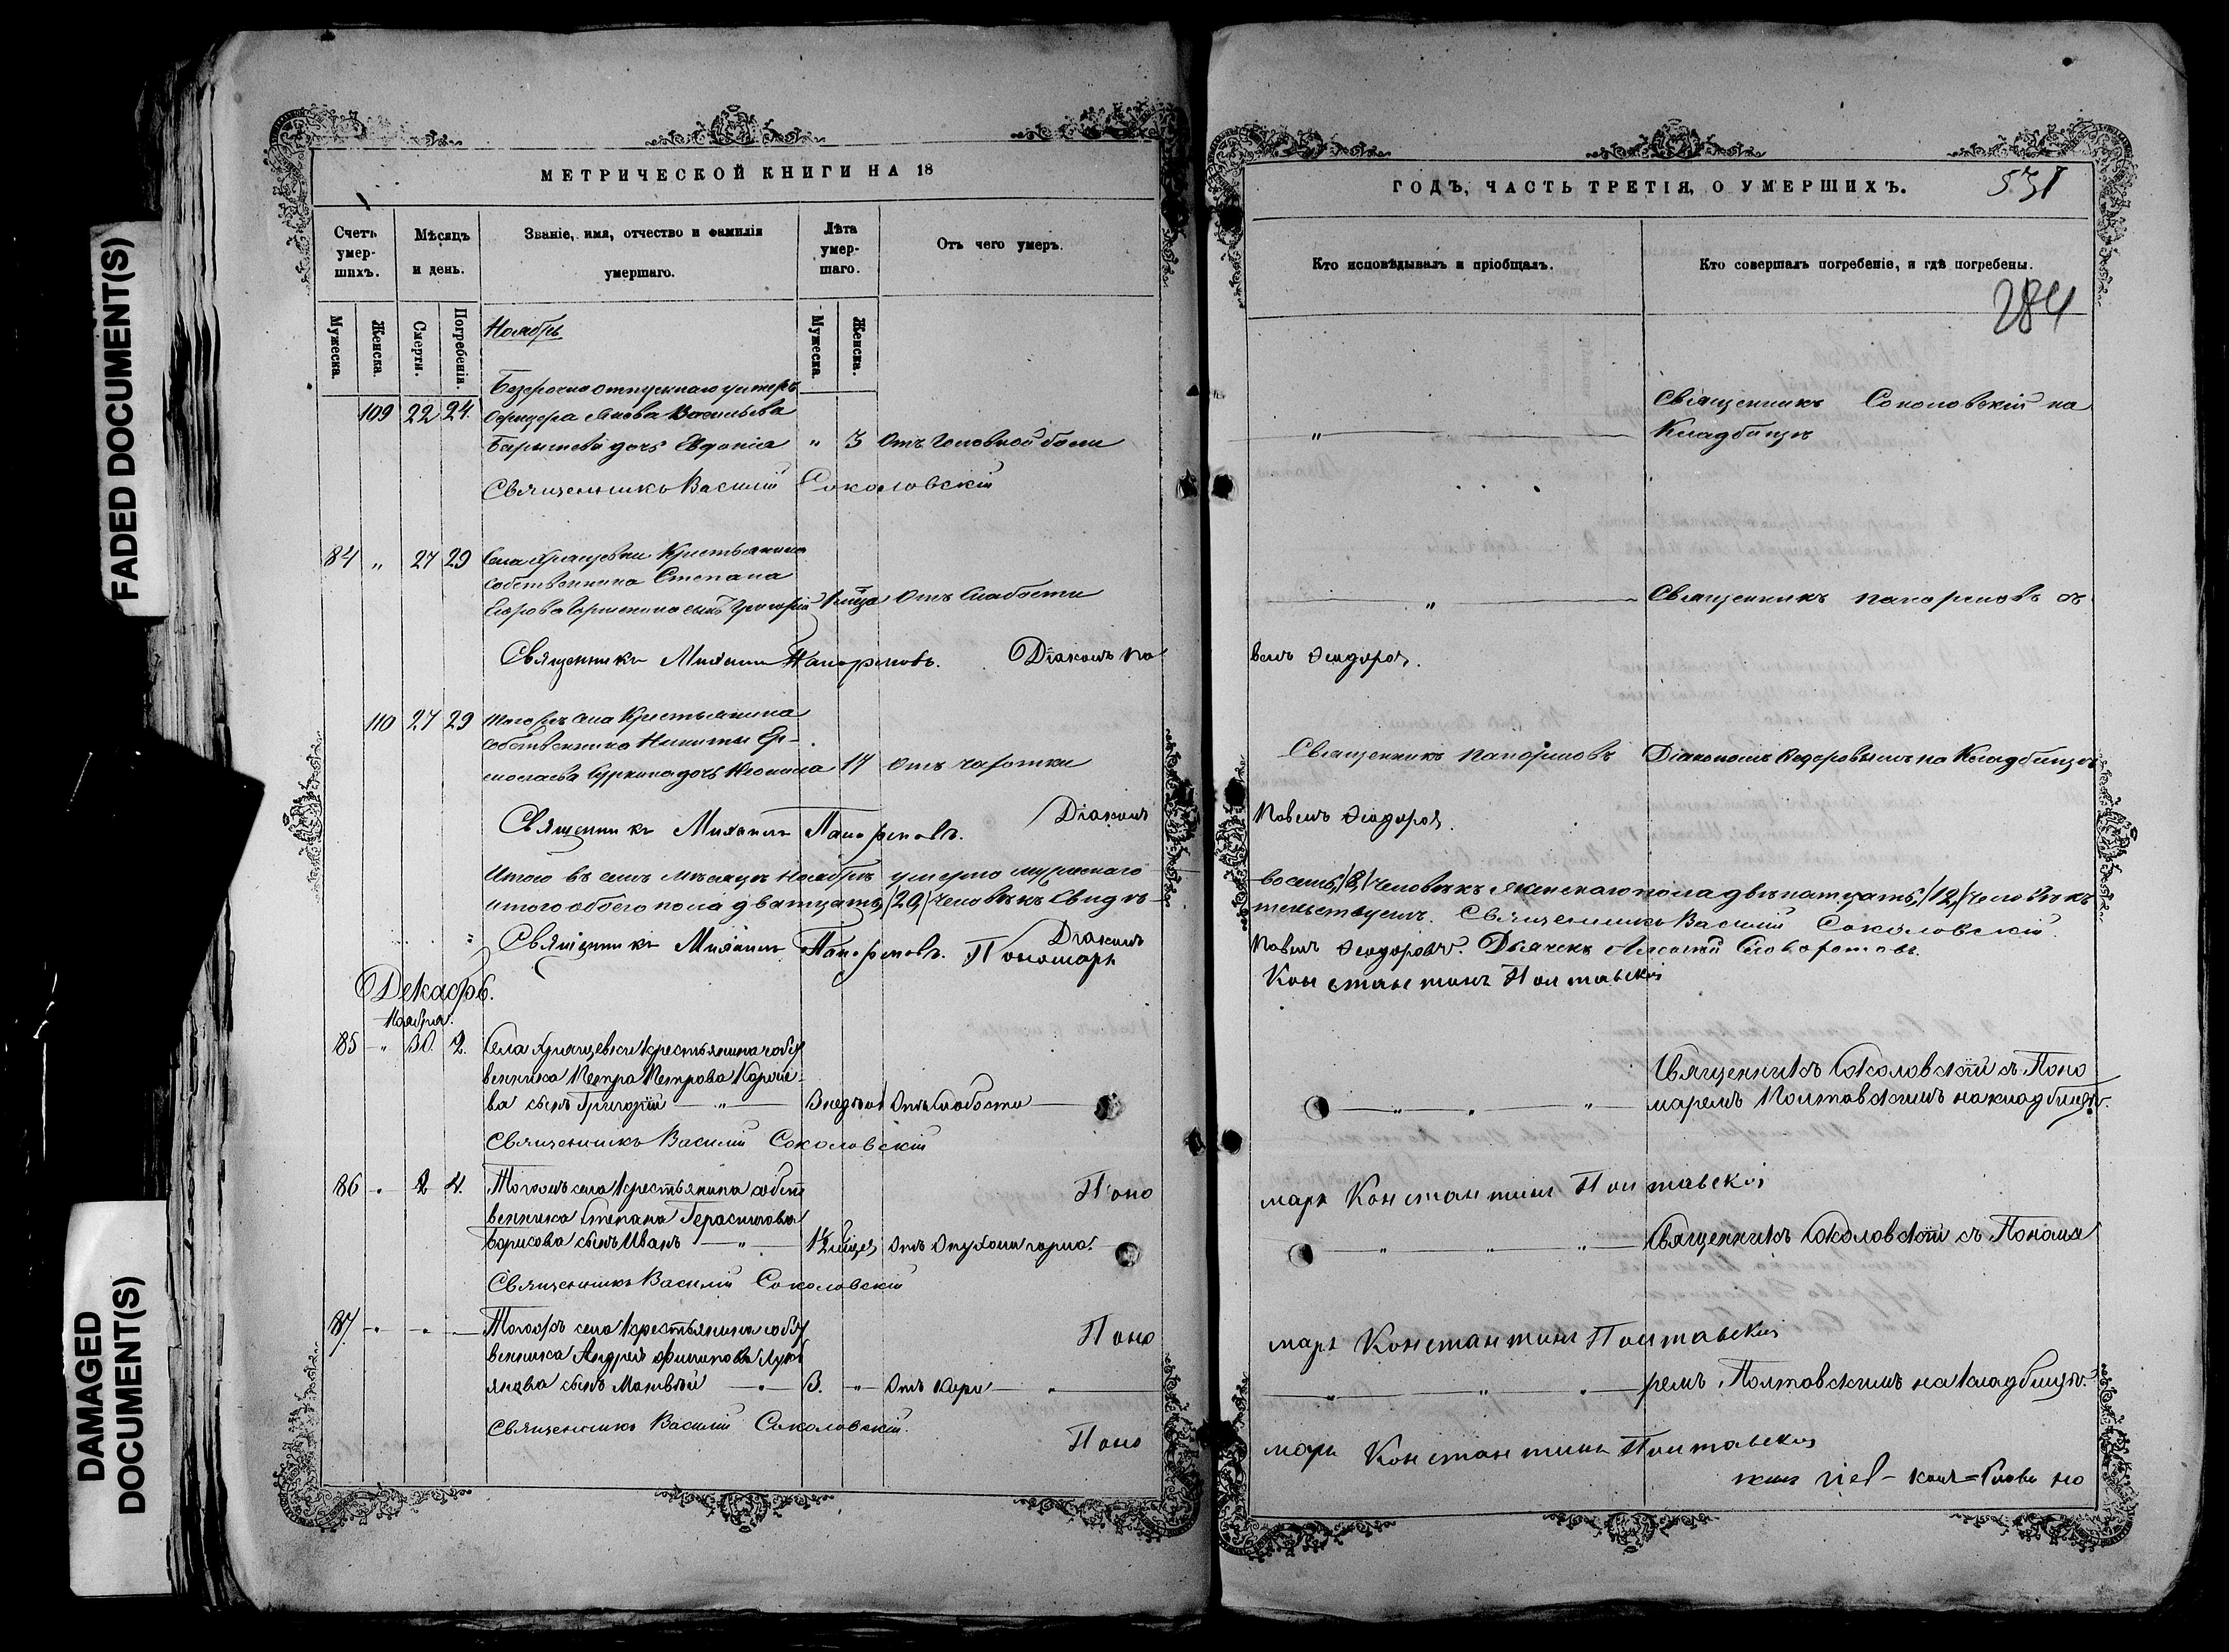 FADED DOCUMENT(S)
DAMAGED
DOCUMENT(S)
МЕТРИЧЕСКОЙ КНИГИ НА 18
Счетъ умер-шихъ.
Мѣсяцъ и день.
Званіе, имя, отчество и фамилія
умершаго.
Лѣта умер-шаго.
Отъ чего умеръ.
Мужеска.
Женска.
Смерти.
Погребенія.
Мужеска.
Женска.
Ноябрь
Безсрочно отпускнаго унтеръ
109 22 24 Офицера Якова Васильева
дочь Евдокія " 3 Отъ головной боли
Священникъ Василій Соколовскій
84 " 27 29 Села Хрящевки Крестьянина
собственника Степана
сынъ Григорій Отъ слабости
Священникъ Михаилъ Діаконъ Па
110 27 29 Тогожъ села Крестьянина
собственника Никиты Ер-
молаева дочь 17 Отъ чахотки
Священникъ Михаилъ Діаконъ
Итого въ семъ мѣсяцѣ Ноябрѣ умерло мужескаго
итого обоего пола дватцать /20/ человѣкъ Свидѣ-
Священникъ Михаилъ Діаконъ
Пономарь
Декабрь.
Ноября.
85 " 30. 2. Села Хрящевки крестьянина собст
венника Петра Петрова
ва сынъ Григорій " 3 недѣли Отъ слабости
Священникъ Василій Соколовскій
86 " 2 4. Тогожъ села крестьянина собст
венника Степана Герасимова
Борисова сынъ Иванъ " Отъ опухоли горла.
Поно
Священникъ Василій Соколовскій
87 " " Тогожъ села крестьянина собст
венника Андрея Филипова
сынъ Матвѣй " 3. " Отъ кори "
Поно
Священникъ Василій Соколовскій.
Поно
ГОДЪ, ЧАСТЬ ТРЕТІЯ, О УМЕРШИХЪ.
531
Кто исповѣдывалъ и пріобщалъ.
Кто совершалъ погребеніе, и гдѣ погребены.
284
Священникъ Соколовскій на
" Кладбищѣ
" Священникъ съ
велъ Ѳеодоровъ.
Священникъ Діакономъ Ѳедоровымъ на Кладбищѣ
Павелъ Ѳеодоровъ.
восемь /8/ человѣкъ женскаго пола двѣнатцать /12/ человѣкъ
тельствуемъ. Священникъ Василій Соколовскій.
Павелъ Ѳеодоровъ. Дьячекъ Алексѣй
Константинъ Полтавскій
Священникъ Соколовскій съ Поно
" " " маремъ Полтавскимъ на кладбищѣ.
марь Константинъ Полтавскій
" " " Священникъ Соколовскій съ Понома
марь Константинъ Полтавскій
" " " ремъ Полтавскимъ на кладбищѣ.
марь Константинъ Полтавскій